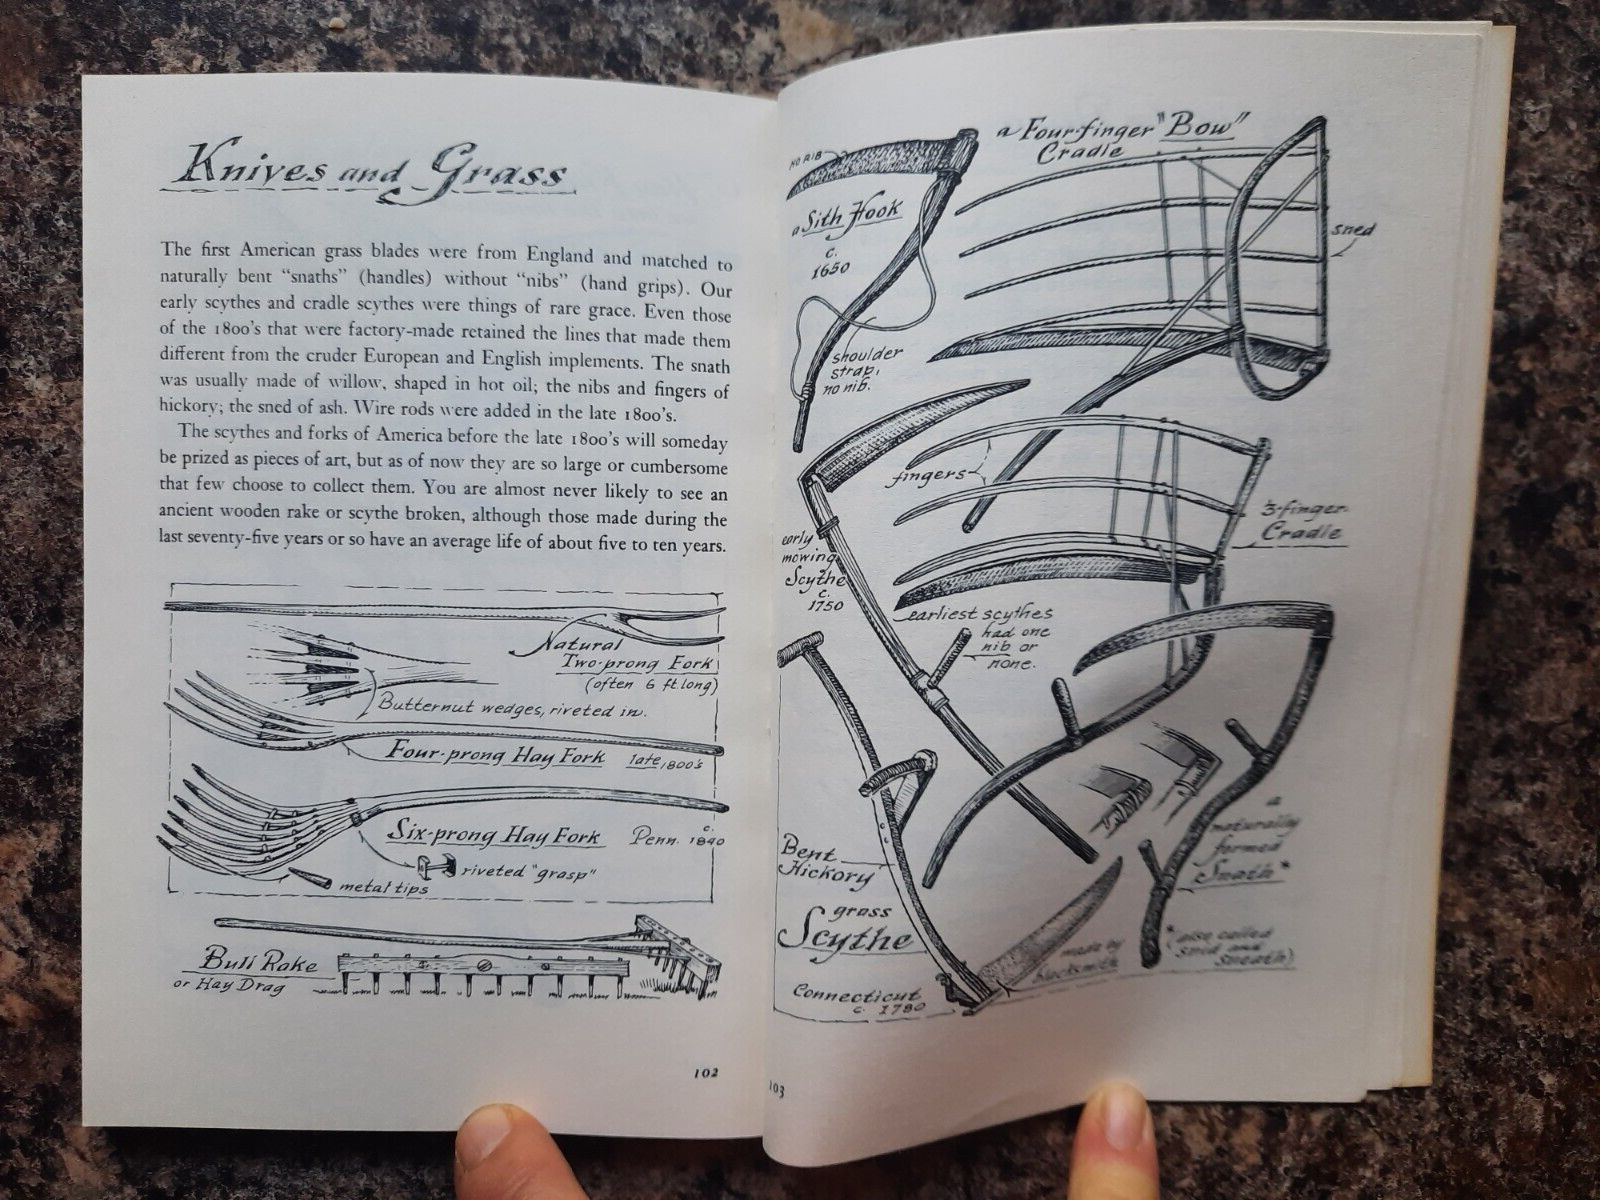 Knives and Grass
The first American grass blades were from England and matched to
naturally bent “snaths” (handles) without “nibs” (hand grips). Our
early scythes and cradle scythes were things of rare grace. Even those
of the 1800’s that were factory-made retained the lines that made them
different from the cruder European and English implements. The snath
was usually made of willow, shaped in hot oil; the nibs and fingers of
hickory; the sned of ash. Wire rods were added in the late 1800’s.
The scythes and forks of America before the late 1800’s will someday
be prized as pieces of art, but as of now they are so large or cumbersome
that few choose to collect them. You are almost never likely to see an
ancient wooden rake or scythe broken, although those made during the
last seventy-five years or so have an average life of about five to ten years.
Natural
Two-prong Fork
(often 6 ft. long)
Butternut wedges, riveted in.
Four-prong Hay Fork late 1800's
Six-prong Hay Fork Penn. c. 1840
riveted "grasp"
metal tips
Bull Rake
or Hay Drag
102
NO RIB
a Sith Hook
c.
1650
shoulder
strap,
no nib.
a Four-finger "Bow"
Cradle
sned
fingers
3-finger
Cradle
early
mowing
Scythe
c.
1750
earliest scythes
had one
nib or
none.
Bent
Hickory
grass
Scythe
Connecticut
c. 1780
made by
blacksmith
a
naturally
formed
Snath*
*(also called
sned and
sneath)
103